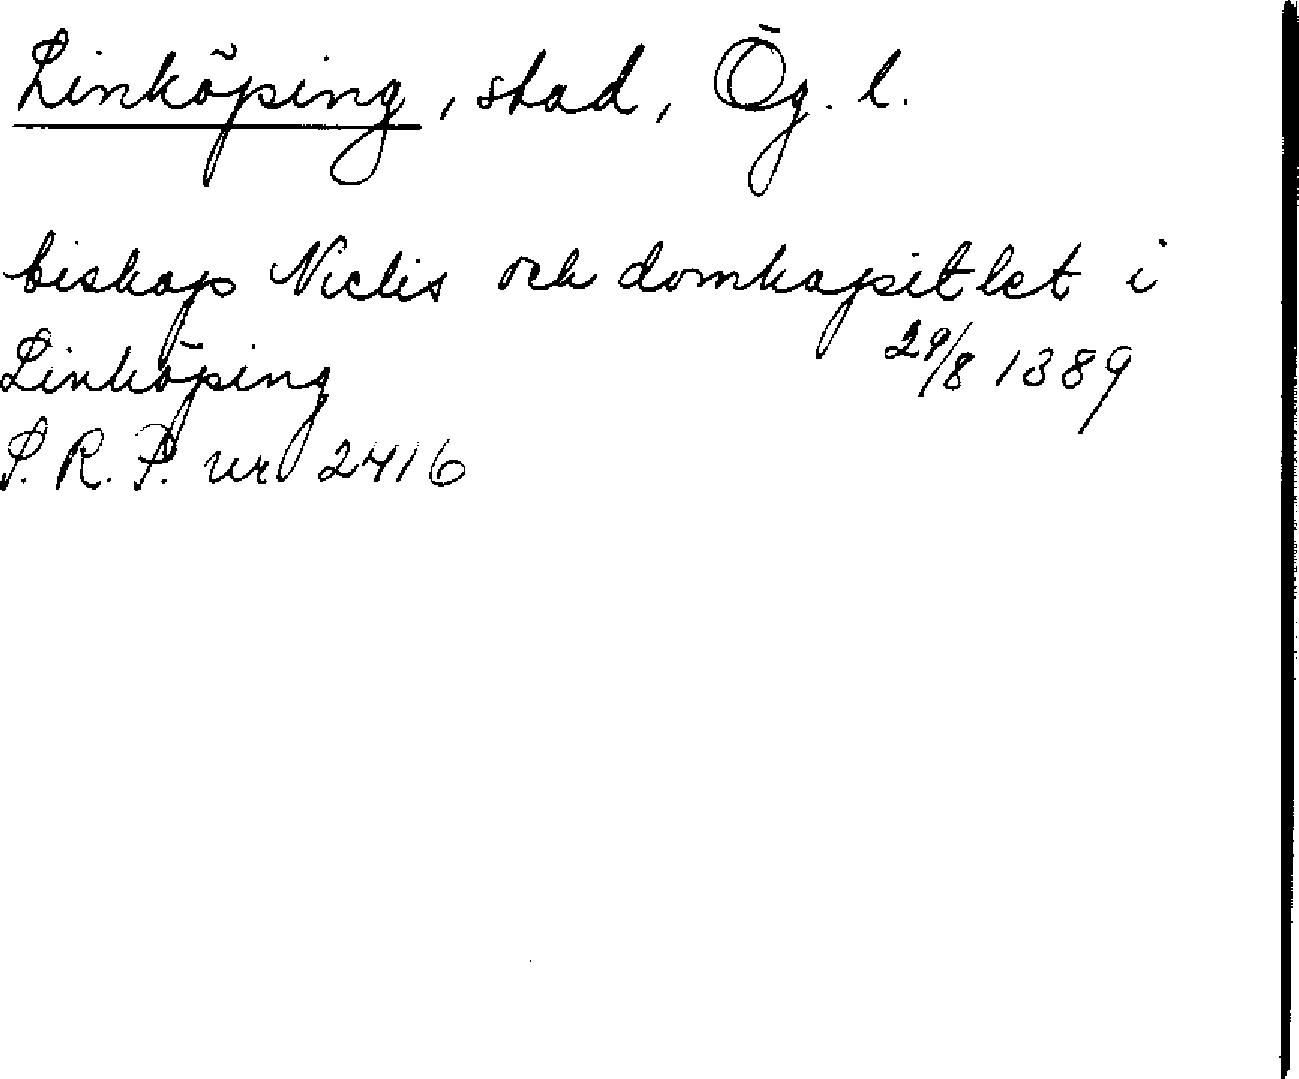 Linköping, stad, Ög. l.
biskop Niclis och domkapitlet i
Linköping 29/8 1389
S. R. P. nr 2416